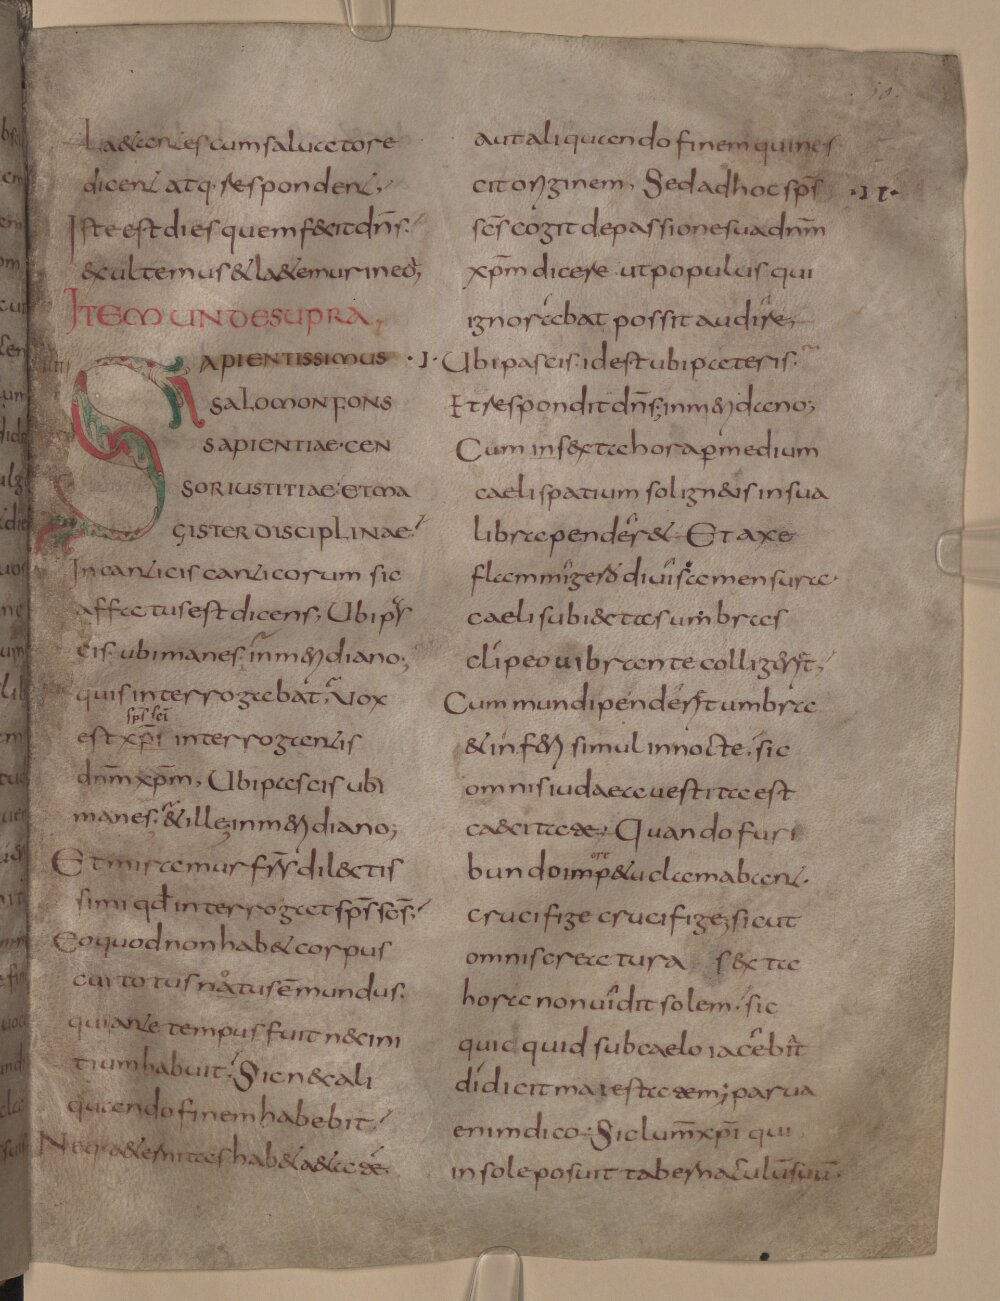 Laetantes cum salvatore
dicent atq· respondent·
Iste est dies quem fecit dn̄s·
exultemus & laetemur in eo;
ITEM UNDE SUPRA,
SAPIENTISSIMUS
SALOMON FONS
SAPIENTIAE· CEN
SOR IUSTITIAE· ET MA
GISTER DISCIPLINAE·
In canticis canticorum sic
affatus est dicens; Ubi pas
cis· ubi manes· in meridiano;
quis interrogabat, Vox
sps sci
est xp̄i interrogantis
dn̄m xp̄m, Ubi pascis ubi
manes· & ille; in meridiano;
Et miramur frs dilectis
simi qd interrogat sp̄s sc̄s·
Eo quod non habet corpus
cui totus natus ē mundus·
qui ante tempus fuit nec ini
tium habuit· Sic nec ali
quando finem habebit·
Neq· aeternitas habet aetatē
aut aliquando finem qui nes
cit originem, Sed ad hoc sp̄s
sc̄s cogit de passione sua dn̄m
xp̄m dicere ut populus qui
ignorabat possit audire,
·I· Ubi pascis· id est ubi pateris·
·II·
Et respondit dn̄s; in meridiano;
Cum in sexta hora per medium
caeli spatium sol igneis in sua
libra penderet· Et axe
flammigero divisa mensura·
caeli subiectas umbras
clipeo vibrante colligerit,
Cum mundi penderet umbra
& infert simul in nocte, sic
omnis iudaea vestita est
caecitate, Quando furi
bundo imp ore & u clamabant·
crucifige crucifige; sicut
omnis creatura sexta
hora non vidit solem· sic
quic quid sub caelo iacebat
didicit maiestatem; parva
enim dico· Sic lum̄ xp̄i qui
in sole posuit tabernaculū suū·